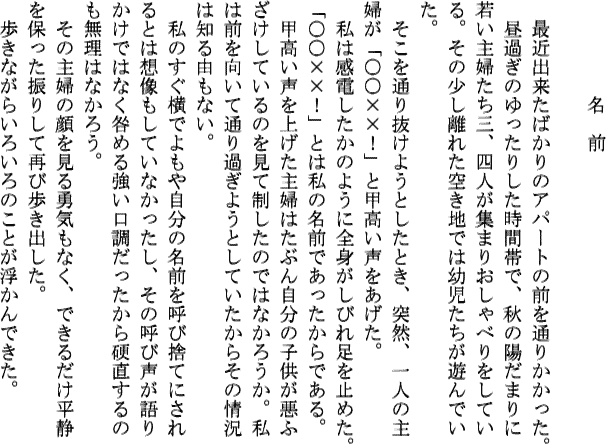 名前
最近出来たばかりのアパートの前を通りかかった。
昼過ぎのゆったりした時間帯で、秋の陽だまりに
若い主婦たち三、四人が集まりおしゃべりをしてい
る。その少し離れた空き地では幼児たちが遊んでい
た。
そこを通り抜けようとしたとき、突然、一人の主
婦が「〇〇××！」と甲高い声をあげた。
私は感電したかのように全身がしびれ足を止めた。
「〇〇××！」とは私の名前であったからである。
甲高い声を上げた主婦はたぶん自分の子供が悪ふ
ざけしているのを見て制したのではなかろうか。私
は前を向いて通り過ぎようとしていたからその情況
は知る由もない。
私のすぐ横でよもや自分の名前を呼び捨てにされ
るとは想像もしていなかったし、その呼び声が語り
かけではなく咎める強い口調だったから硬直するの
も無理はなかろう。
その主婦の顔を見る勇気もなく、できるだけ平静
を保った振りして再び歩き出した。
歩きながらいろいろのことが浮かんできた。